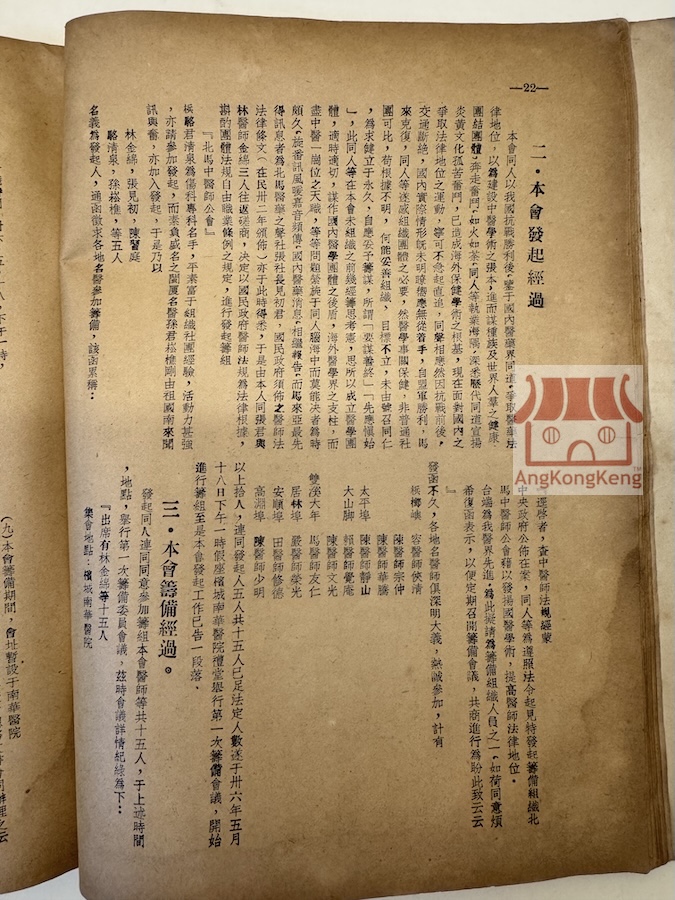 —22—
二・本會發起經過
本會同人以我國抗戰勝利後,鑒于國內醫藥界同道,爭取醫藥法
律地位,以為建設中醫學術之張本,進而謀種族及世界人羣之健康,
團結團體,奔走奮鬥,如火如荼,同人等執業海隅,深悉歷代同道宣揚
炎黃文化孤苦奮鬥,已造成海外保健學術之根基,現在面對國內之
爭取法律地位之運動,寧可不急起直追,同聲相應然因抗戰前後,
交通斷絕,國內實際情形既未明瞭響應無從着手,自盟軍勝利,馬
來克復,同人等遂感組織團體之必要,然醫學事關保健,非普通社
團可比,荷根據不明,何能妥善組織,目標不立,未由號召同仁
,為求健立于永久,自應妥予籌謀,所謂「要謀善終」「先應愼始
」,此同人等在本會未組織之前幾經籌思考慮,思所以成立醫學團
體,適時適切,謀作國內醫學團體之後盾,海外醫學界之支柱,而
盡中醫一崗位之天職,等等問題縈旋于同人腦海中而莫能決者為時
頗久,旋番訊風嗳嘉音頻傳,國內醫藥消息,相繼報告,而馬來亞最先
得訊息者為北馬醫藥之聲社張社長見初君,國民政府須佈之醫師法
法律條文(在民卅二年頒佈)亦于此時得悉,于是由本人同張君與
林醫師金綿三人往返磋商,決定以國民政府醫師法規為法律根據,
斟酌團體法規自由職業條例之規定,進行發起籌組
『北馬中醫師公會』
駱君清泉為傷科專科名手,平素富于組織社團經驗,活動力甚強
,亦請參加發起,而素負威名之閩廈名醫孫君松樵剛由祖國南來聞
訊與奮,亦加入發起,于是乃以
林金綿,張見初,陳醫庭
駱清泉,孫松樵,等五人
名義為發起人,通函徵求各地名醫參加籌備,該函累稱:
逕啓者,查中醫師法規經蒙
中央政府公佈在案,同人等為遵服法令起見特發起籌備組織北
馬中醫師公會藉以發揚國醫學術,提高醫師法律地位,
台端為我醫界先進,為此擬請為籌備組織人員之一,如荷同意煩
希復函表示,以便定期召開籌備會議,共商進行為盼此致云云
』
發函不久,各地名醫師俱深明大義,熱誠參加,計有
檳榔嶼 容醫師俠清
陳醫師宗仲
陳醫師華騰
太平埠 陳醫師靜山
大山脚 賴醫師覺庵
陳醫師文光
雙溪大年 馬醫師友仁
居林埠 嚴醫師榮光
安順埠 田醫師修德
高淵埠 陳醫師少明
以上拾人,連同發起人五人共十五人已足法定人數遂于卅六年五月
十八日下午一時假座檳城南華醫院禮堂舉行第一次籌備會議,開始
進行籌組至是本會發起工作已告一段落,
三・本會籌備經過。
發起同人連同同意參加籌組本會醫師等共十五人,于上述時間
,地點,舉行第一次籌備委員會議,茲時會議詳情紀錄為下:
『出席有林金綿等十五人
集會地點:檳城南華醫院
(九)本會籌備期間,會址暫設于南華醫院
AngKongKeng